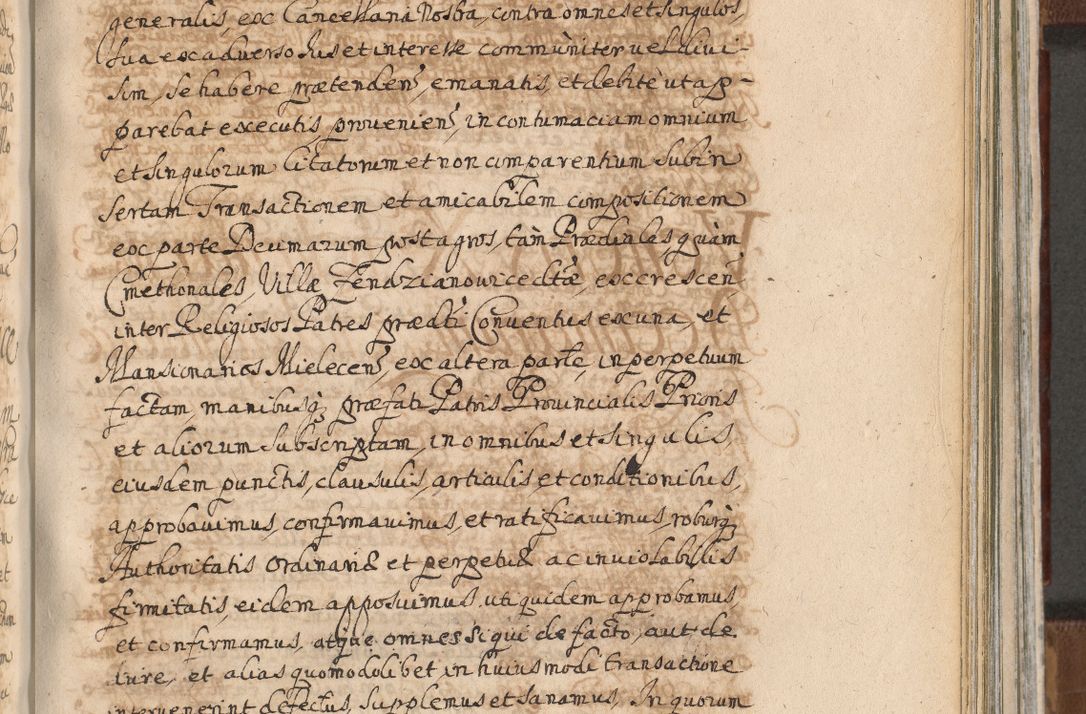 generalis, ex Cancellaria Nostra, contra omnes et singulos,
sua ex adverso Jus et interesse communiter vel divi-
sim, se habere prætenden, emanatis, et debite ut ap-
parebat executis, provenien, in contumaciam omnium
et singulorum citatorum et non comparentium subin
sertam Transactionem et amicabilem compositionem
ex parte Decimarum post agros, tam Prædiales quàm
Cmethonales, Villæ Jendzianowice dctæ, excrescen,
inter Religiosos Patres prædcti Conventus ex una, et
Mansionarios Mielecen, ex altera parte, in perpetuum
factam, manibusq præfati Patris Provincialis Prioris
et aliorum subscriptam, in omnibus et singulis,
eiusdem punctis, clausulis, articulis, et conditionibus,
approbavimus, confirmavimus, et ratificavimus, roburq
Authoritatis Ordinariæ et perpetuæ ac inviolabilis
firmitatis, eidem apposuimus, uti quidem approbamus,
et confirmamus, atque omnes si qui de facto, aut de
Iure, et alias quomodolibet in huiusmodi transactione
intervenerint defectus, supplemus et sanamus, In quorum